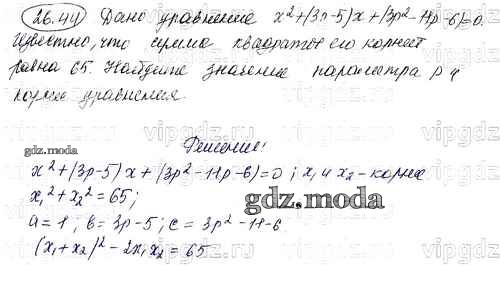 26.44) Дано уравнение x²+(3p-5)x+(3p²-11p-6)=0.
Известно, что сумма квадратов его корней
равна 65. Найдите значение параметра p и
корни уравнения.
Решение:
gdz.moda
x²+(3p-5)x+(3p²-11p-6)=0; x₁ и x₂ - корни
x₁²+x₂²=65;
gdz.moda
a=1; b=3p-5; c=3p²-11-6
(x₁+x₂)²-2x₁x₂=65
vipgdz